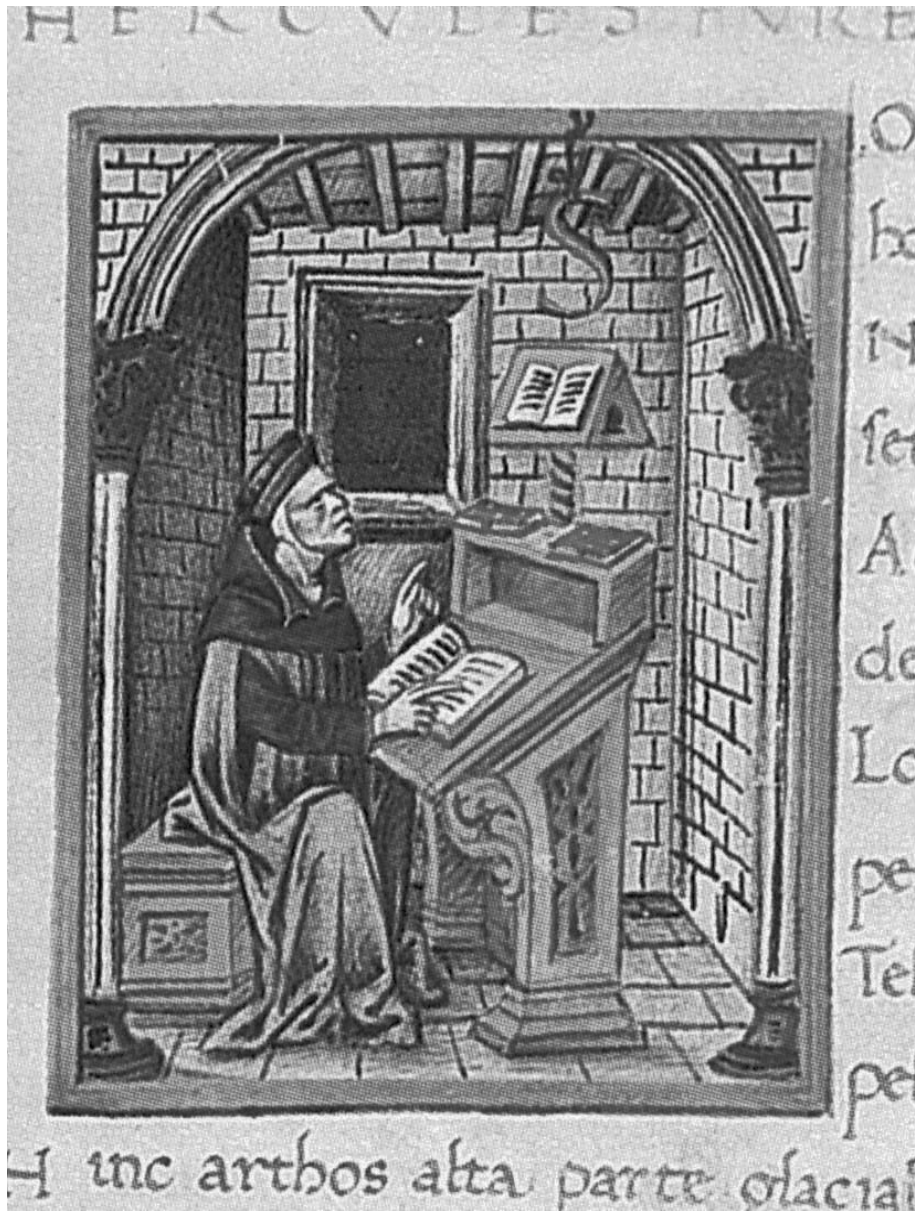 HERCVLES FVRE
S
.O
ho
N
ser
A
de
Lo
pe
Te
pe
H inc arthos alta parte glacial